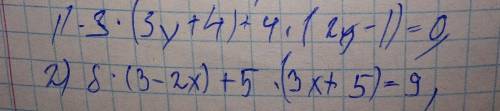 1) -3 · (3y + 4) + 4 · (2y - 1) = 0,
2) 8 · (3 - 2x) + 5 · (3x + 5) = 9,